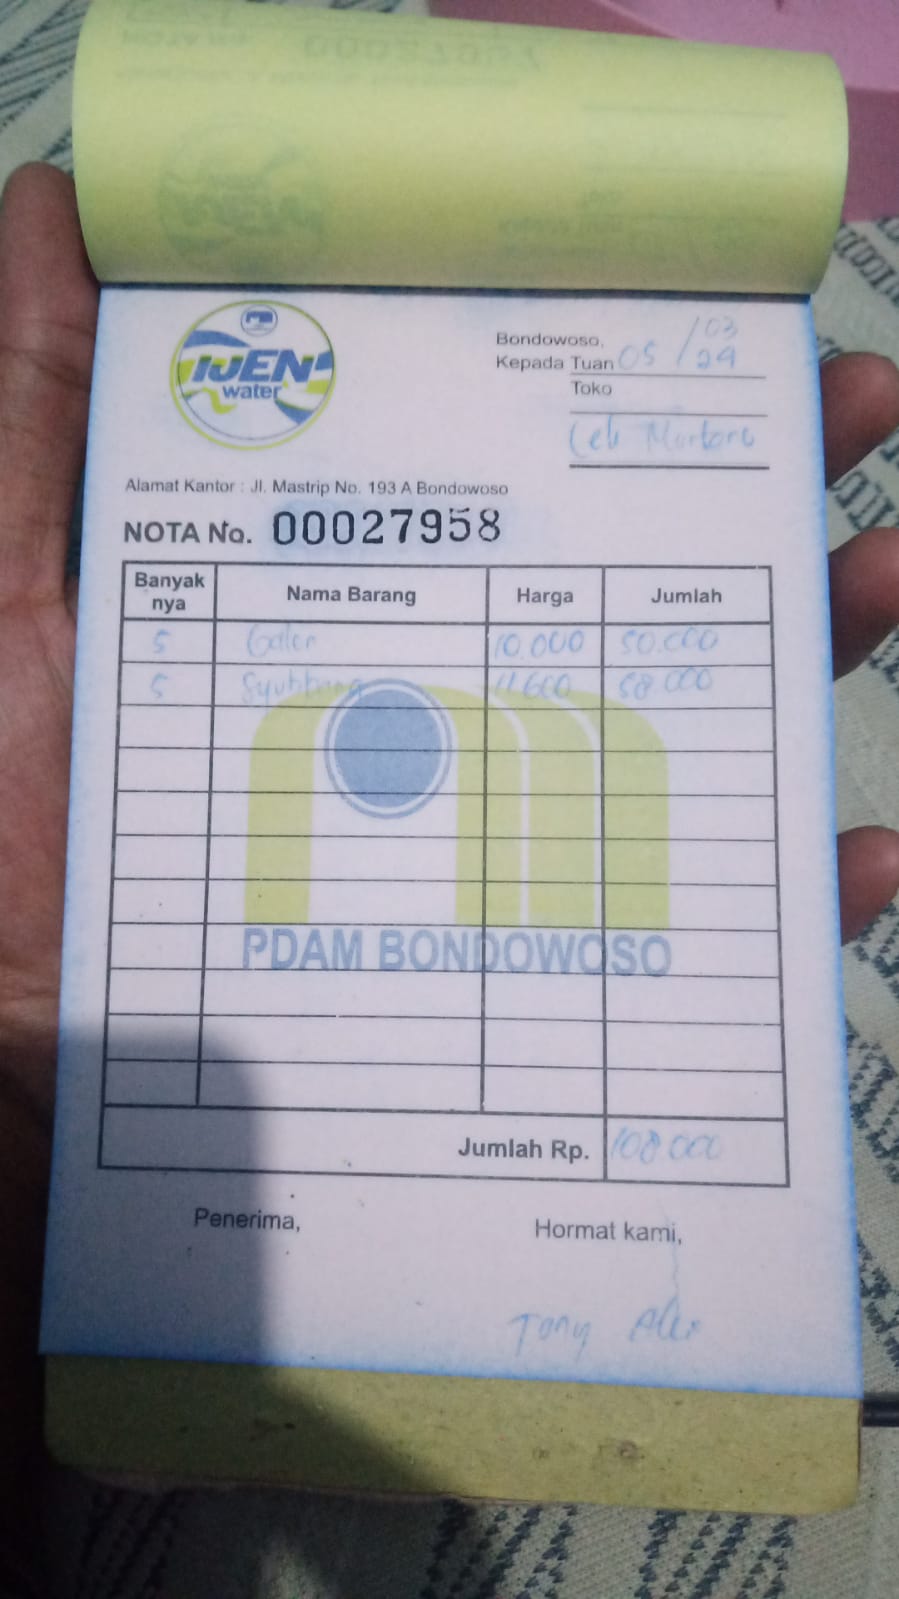 IJEN
water
Bondowoso, 05/03
Kepada Tuan 24
Toko
Alamat Kantor : Jl. Mastrip No. 193 A Bondowoso
NOTA No. 00027958
Banyak nya Nama Barang Harga Jumlah
5 Galon 10.000 50.000
5 Syubbana 11.600 58.000
PDAM BONDOWOSO
Jumlah Rp. 108.000
Penerima, Hormat kami,
Tony